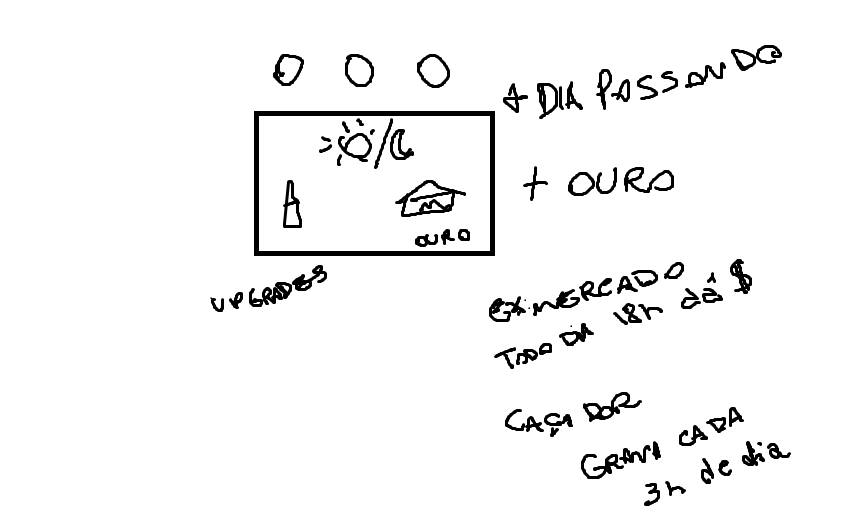 + DIA PASSANDO
+ OURO
OURO
UPGRADES
EX: MERCADO
TODO DIA 18h dá $
CAÇADOR
CADA
3h de dia